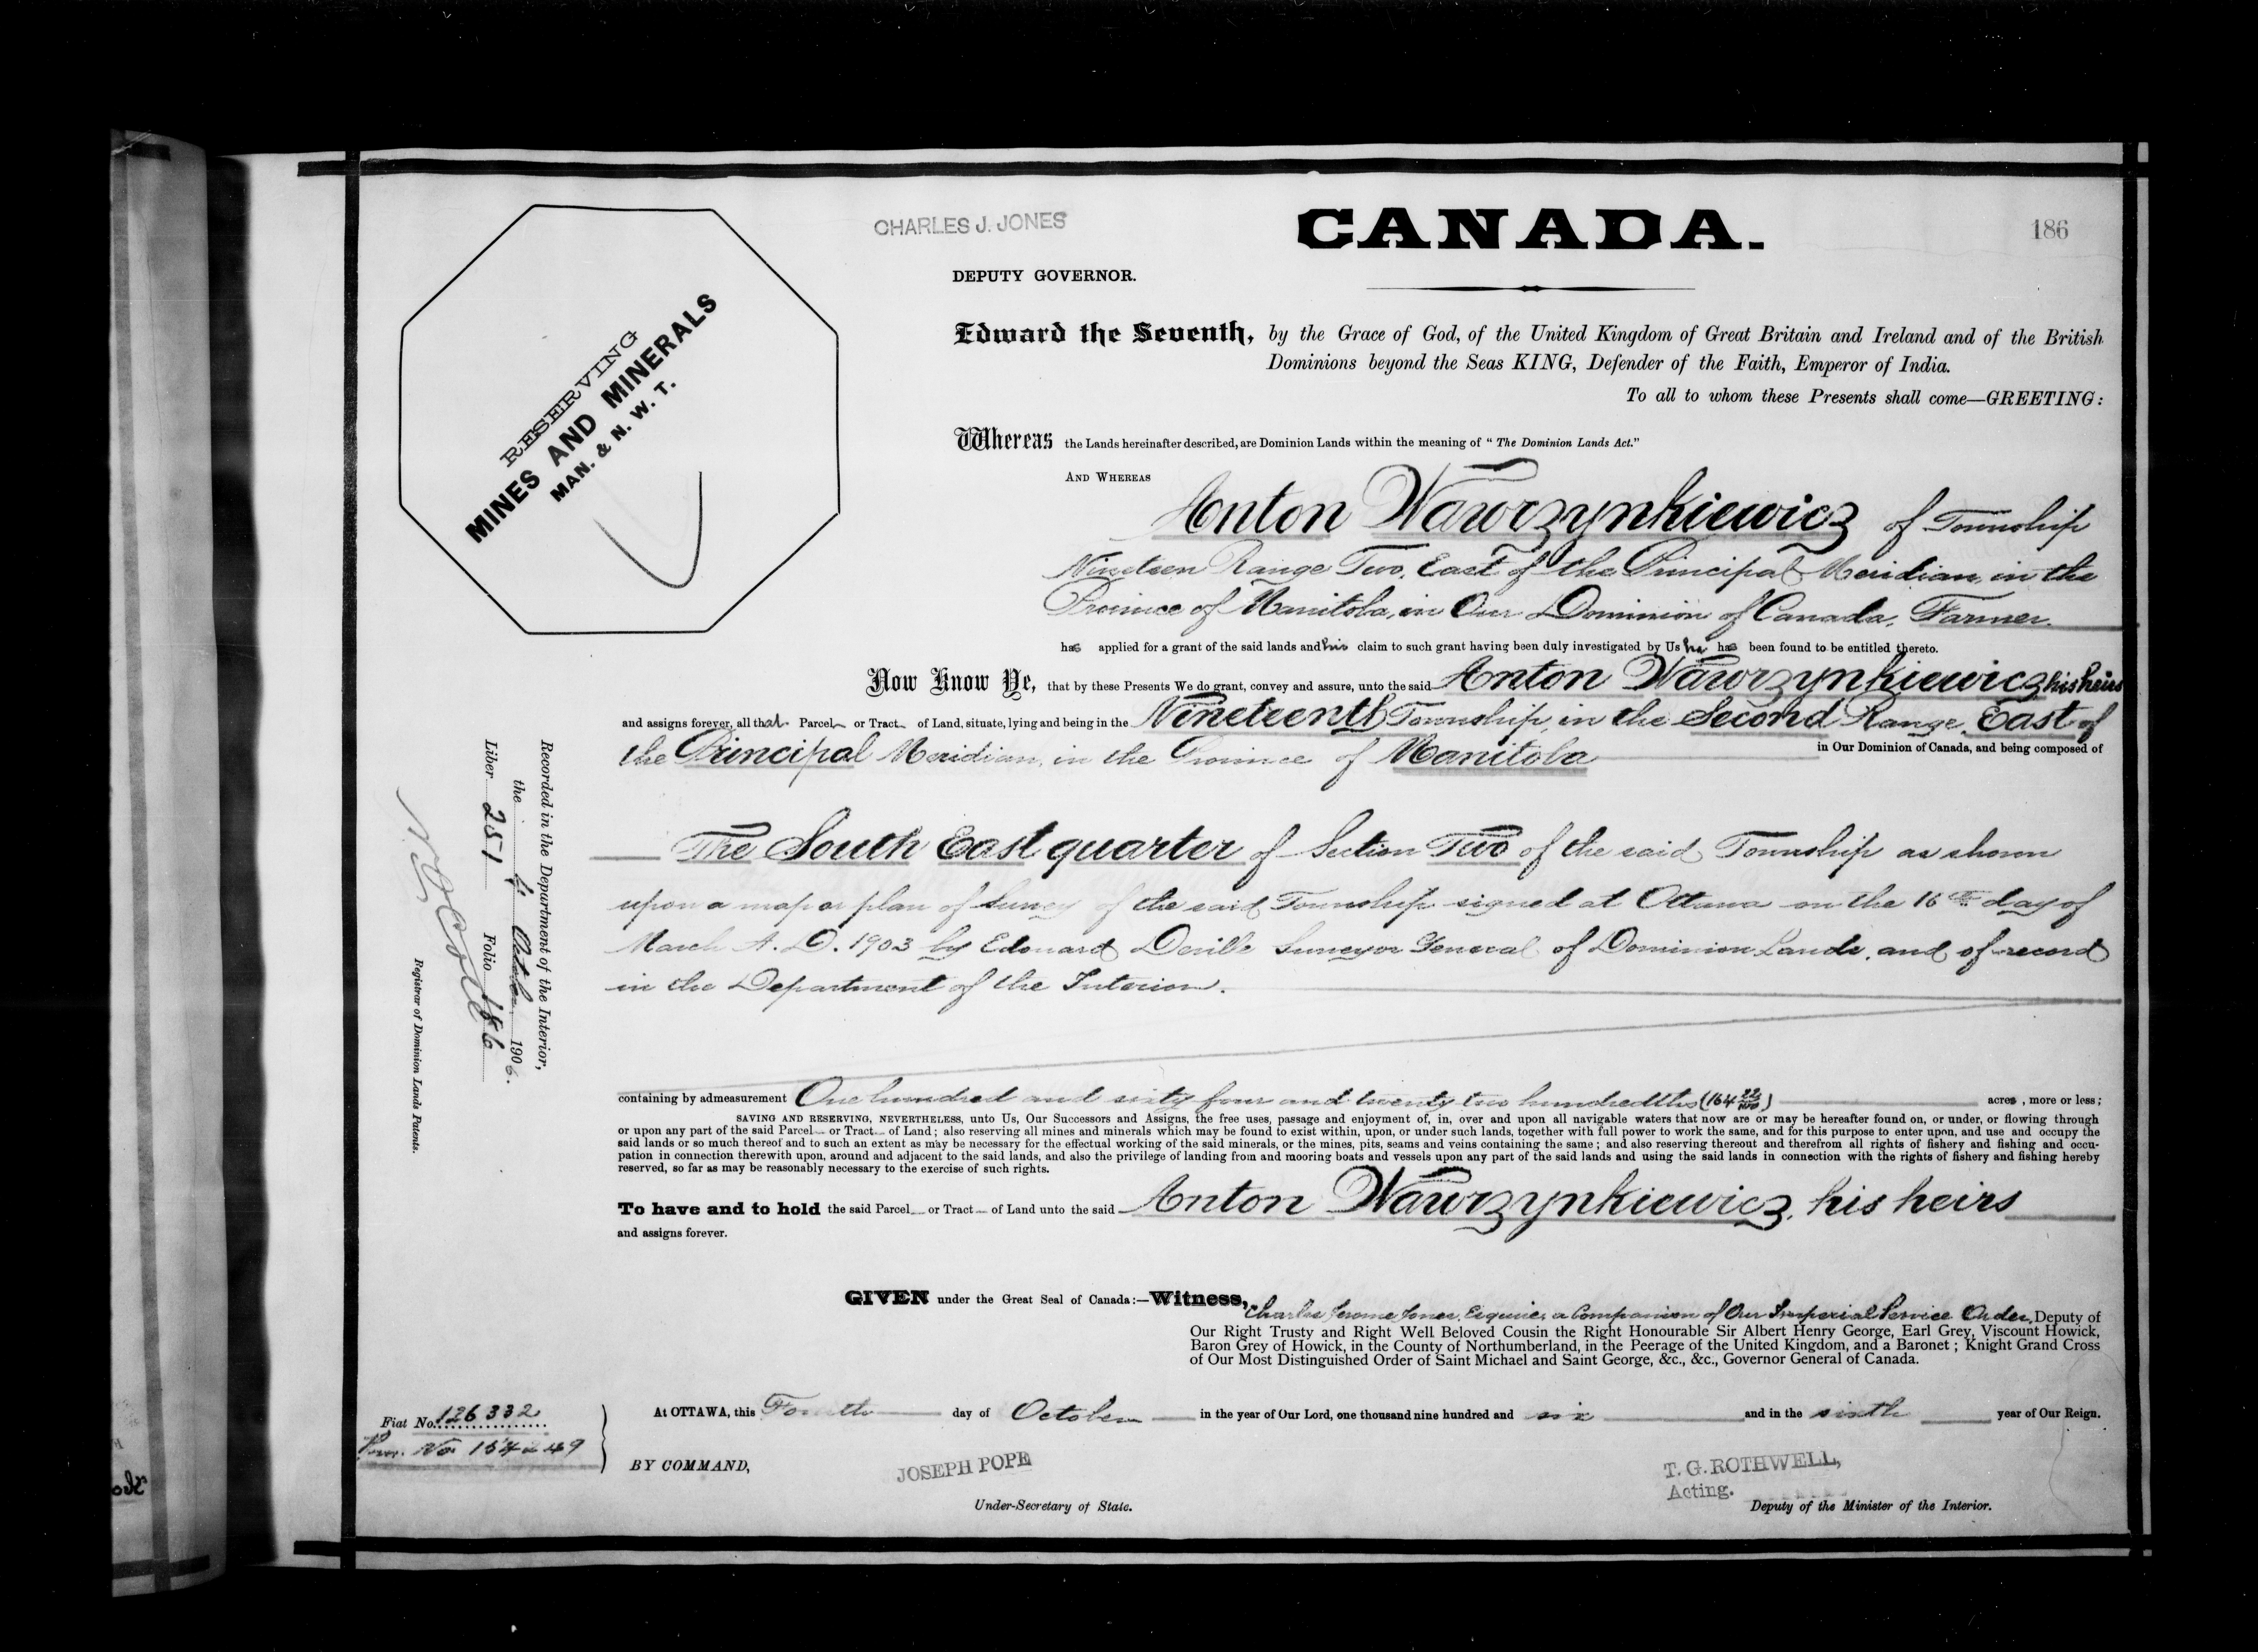 CHARLES J. JONES
CANADA.
186
DEPUTY GOVERNOR.
RESERVING
MINES AND MINERALS
MAN. & N. W. T.
Edward the Seventh, by the Grace of God, of the United Kingdom of Great Britain and Ireland and of the British
Dominions beyond the Seas KING, Defender of the Faith, Emperor of India.
To all to whom these Presents shall come—GREETING:
Whereas the Lands hereinafter described, are Dominion Lands within the meaning of “ The Dominion Lands Act.”
AND WHEREAS
Anton Wawrzynkiewicz of Township
Nineteen Range Two, East of the Principal Meridian, in the
Province of Manitoba, in Our Dominion of Canada, Farmer.
has applied for a grant of the said lands and his claim to such grant having been duly investigated by Us he has been found to be entitled thereto.
Now Know Ye, that by these Presents We do grant, convey and assure, unto the said Anton Wawrzynkiewicz his heirs
and assigns forever, all that Parcel or Tract of Land, situate, lying and being in the Nineteenth Township, in the Second Range, East of
the Principal Meridian, in the Province of Manitoba in Our Dominion of Canada, and being composed of
The South East quarter of Section Two of the said Township as shown
upon a map or plan of survey of the said Township signed at Ottawa on the 16th day of
March A. D. 1903 by Edouard Deville Surveyor General of Dominion Lands, and of record
in the Department of the Interior.
containing by admeasurement One hundred and sixty four and twenty two hundredths (164 22/100) acres , more or less ;
SAVING AND RESERVING, NEVERTHELESS, unto Us, Our Successors and Assigns, the free uses, passage and enjoyment of, in, over and upon all navigable waters that now are or may be hereafter found on, or under, or flowing through
or upon any part of the said Parcel or Tract of Land ; also reserving all mines and minerals which may be found to exist within, upon, or under such lands, together with full power to work the same, and for this purpose to enter upon, and use and occupy the
said lands or so much thereof and to such an extent as may be necessary for the effectual working of the said minerals, or the mines, pits, seams and veins containing the same ; and also reserving thereout and therefrom all rights of fishery and fishing and occu-
pation in connection therewith upon, around and adjacent to the said lands, and also the privilege of landing from and mooring boats and vessels upon any part of the said lands and using the said lands in connection with the rights of fishery and fishing hereby
reserved, so far as may be reasonably necessary to the exercise of such rights.
To have and to hold the said Parcel or Tract of Land unto the said Anton Wawrzynkiewicz, his heirs
and assigns forever.
GIVEN under the Great Seal of Canada:—Witness, Charles Jerome Jones, Esquire, a Companion of Our Imperial Service Order, Deputy of
Our Right Trusty and Right Well Beloved Cousin the Right Honourable Sir Albert Henry George, Earl Grey, Viscount Howick,
Baron Grey of Howick, in the County of Northumberland, in the Peerage of the United Kingdom, and a Baronet ; Knight Grand Cross
of Our Most Distinguished Order of Saint Michael and Saint George, &c., &c., Governor General of Canada.
At OTTAWA, this Fourth day of October in the year of Our Lord, one thousand nine hundred and six and in the sixth year of Our Reign.
BY COMMAND,
JOSEPH POPE
Under-Secretary of State.
T. G. ROTHWELL,
Acting.
Deputy of the Minister of the Interior.
Fiat No. 126332
No. 154249
Recorded in the Department of the Interior,
the 4 October 1906.
Liber 251 Folio 186
Registrar of Dominion Lands Patents.